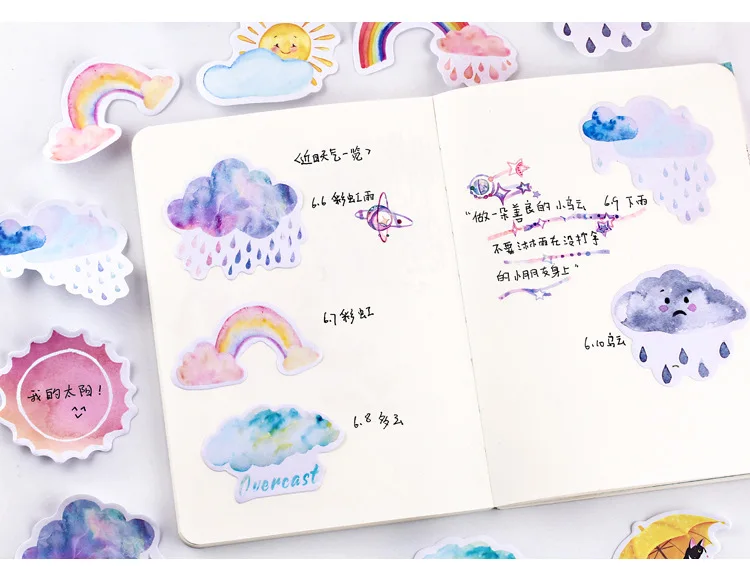 <近日天气一览>
6.6 彩虹雨
6.7 彩虹
6.8 多云
Overcast
我的太阳!
"做一朵善良的小乌云
不要淋雨在没打伞
的小朋友身上"
6.9 下雨
6.10 乌云